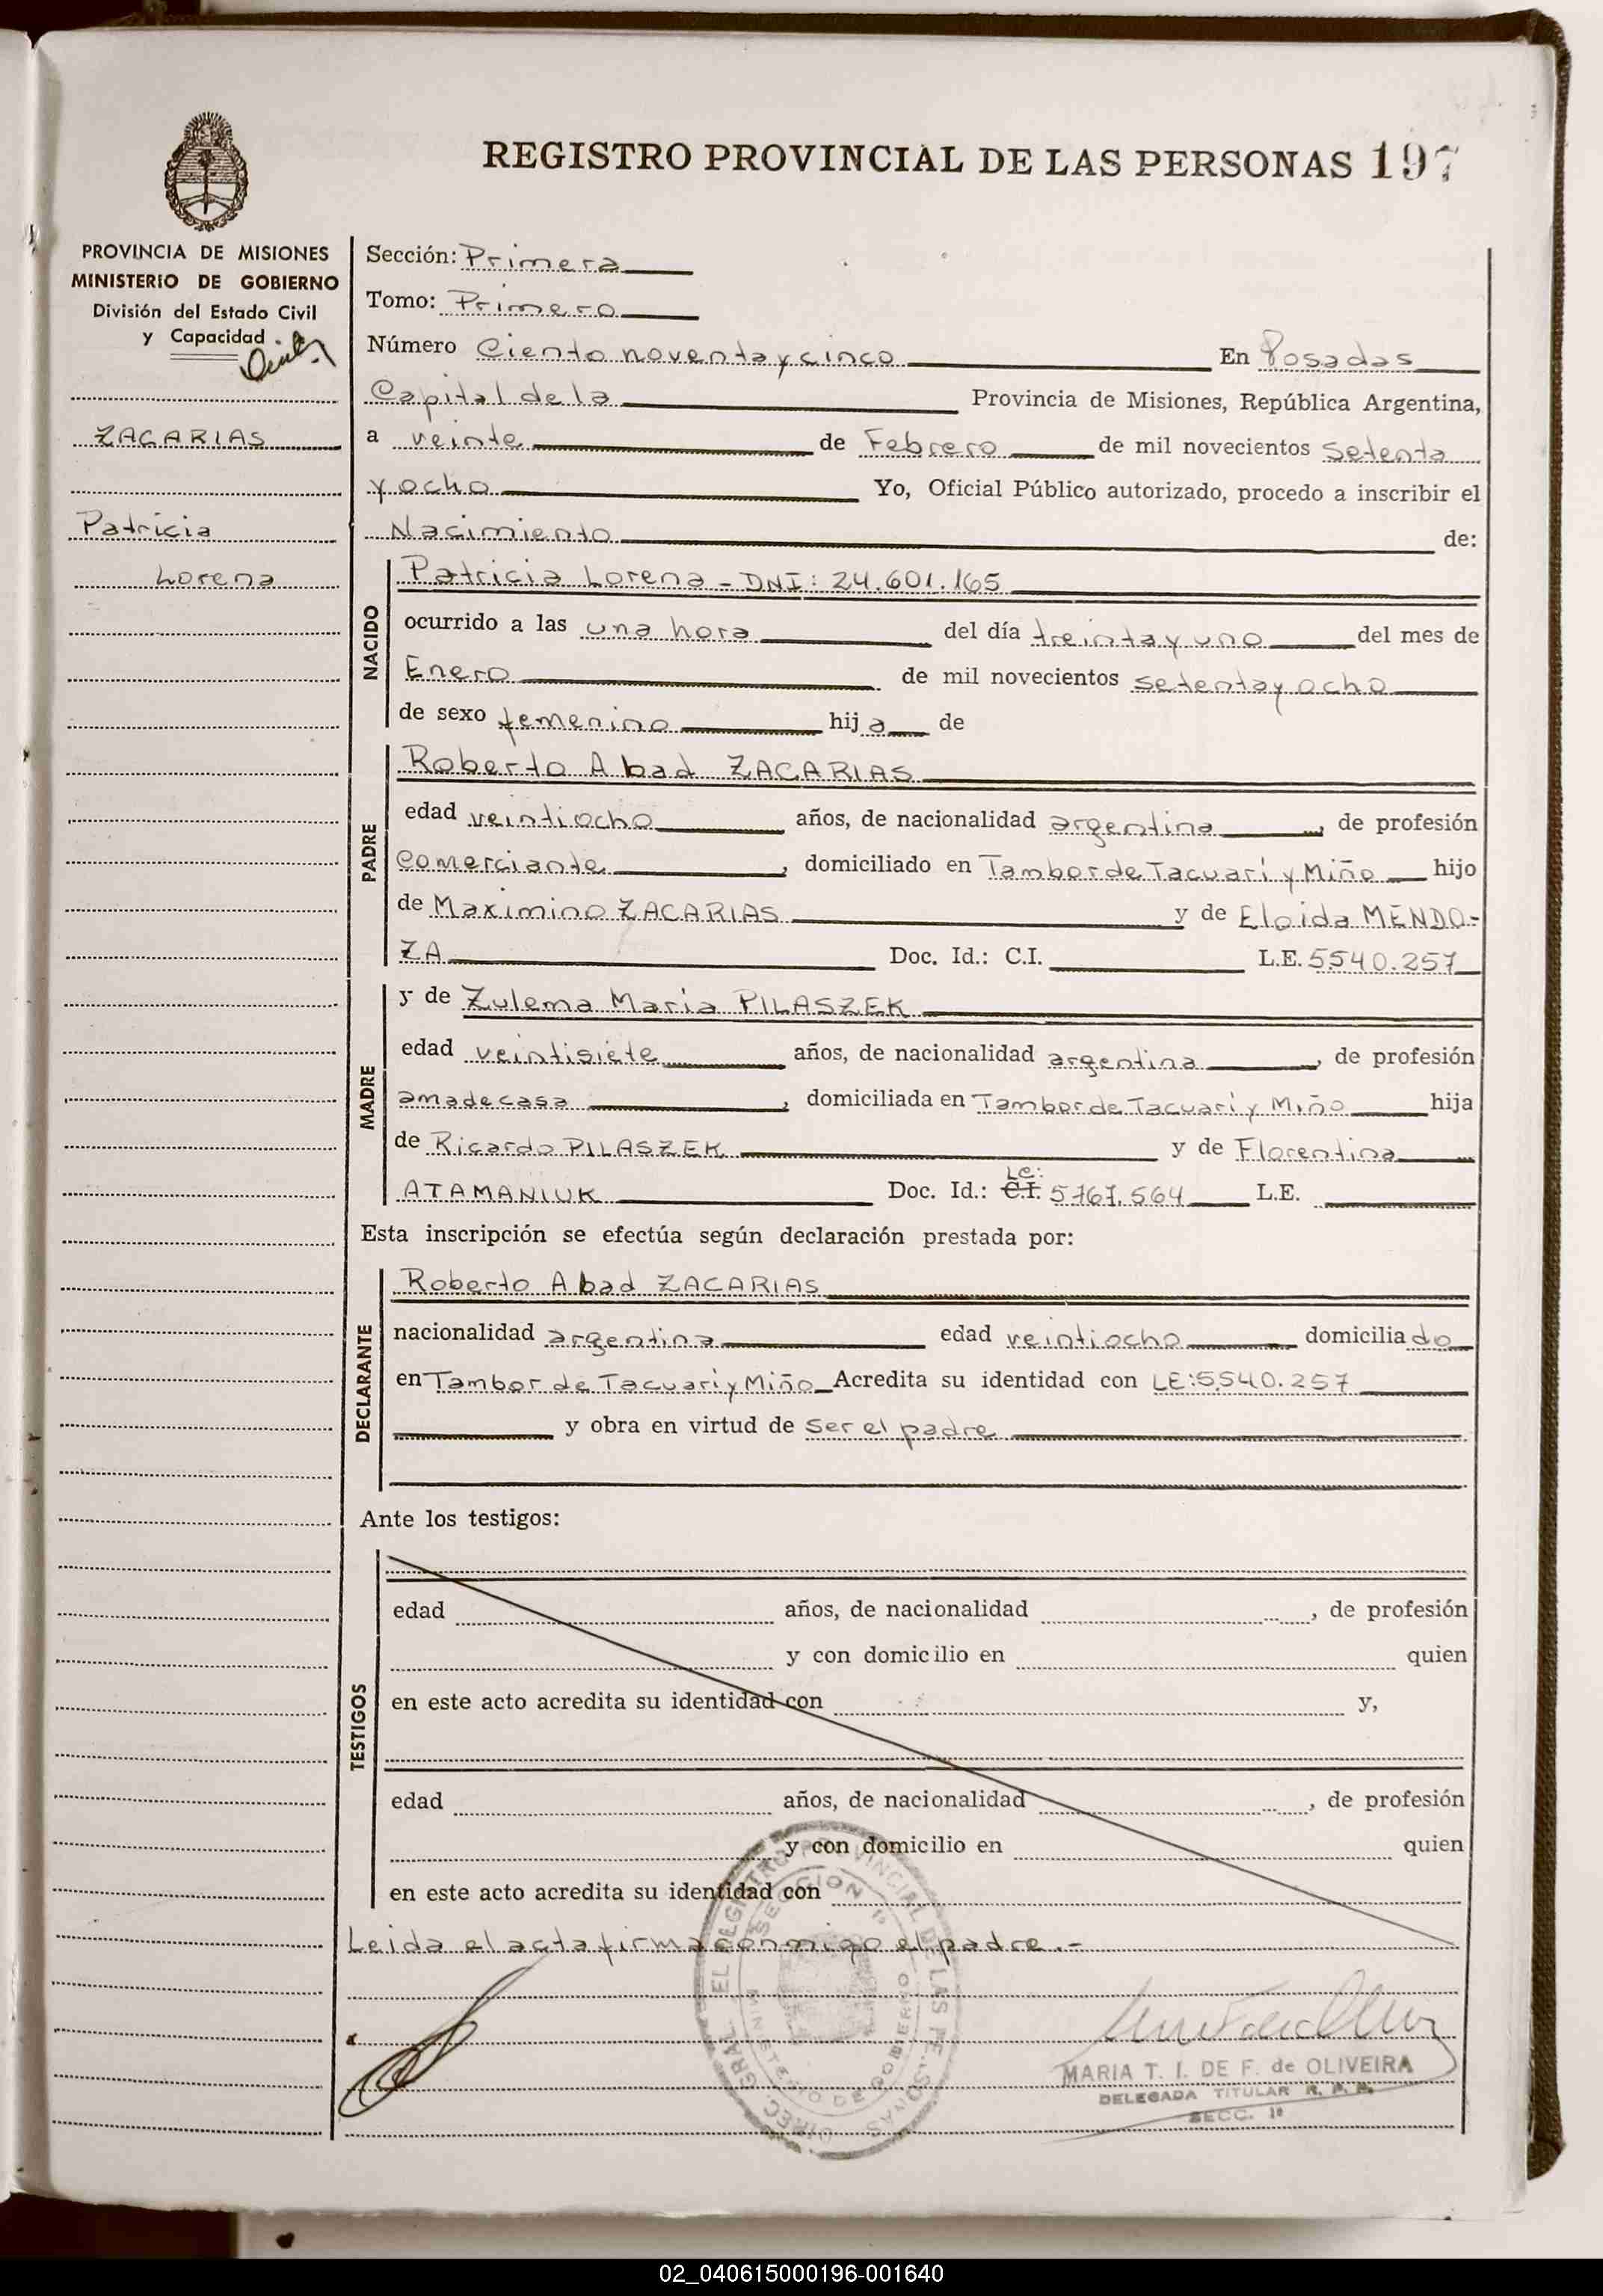 REGISTRO PROVINCIAL DE LAS PERSONAS 197
PROVINCIA DE MISIONES
MINISTERIO DE GOBIERNO
División del Estado Civil
y Capacidad
ZACARIAS
Patricia
Lorena
Sección: Primera
Tomo: Primero
Número Ciento noventa y cinco En Posadas
Capital de la Provincia de Misiones, República Argentina,
a veinte de Febrero de mil novecientos Setenta
y ocho Yo, Oficial Público autorizado, procedo a inscribir el
Nacimiento de:
NACIDO
Patricia Lorena - DNI: 24.601.165
ocurrido a las una hora del día treinta y uno del mes de
Enero de mil novecientos setenta y ocho
de sexo femenino hija de
PADRE
Roberto Abad ZACARIAS
edad veintiocho años, de nacionalidad argentina, de profesión
Comerciante, domiciliado en Tambor de Tacuarí y Miño hijo
de Maximino ZACARIAS y de Eloida MENDO-
ZA Doc. Id.: C.I. L.E. 5.540.257
MADRE
y de Zulema Maria PILASZEK
edad veintisiete años, de nacionalidad argentina, de profesión
ama de casa, domiciliada en Tambor de Tacuarí y Miño hija
de Ricardo PILASZEK y de Florentina
ATAMANIUK Doc. Id.: C.I. LE: 5.767.564 L.E.
Esta inscripción se efectúa según declaración prestada por:
DECLARANTE
Roberto Abad ZACARIAS
nacionalidad argentina edad veintiocho domiciliado
en Tambor de Tacuarí y Miño Acredita su identidad con LE: 5.540.257
y obra en virtud de ser el padre
Ante los testigos:
TESTIGOS
edad años, de nacionalidad , de profesión
y con domicilio en quien
en este acto acredita su identidad con y,
edad años, de nacionalidad , de profesión
y con domicilio en quien
en este acto acredita su identidad con
Leida el acta firma conmigo el padre.-
DIREC. GRAL. DEL REGISTRO PROVINCIAL DE LAS PERSONAS
SECCION 1ª
MINISTERIO DE GOBIERNO
MARIA T. I. DE F. de OLIVEIRA
DELEGADA TITULAR R. P. P.
SECC. 1ª
02_040615000196-001640